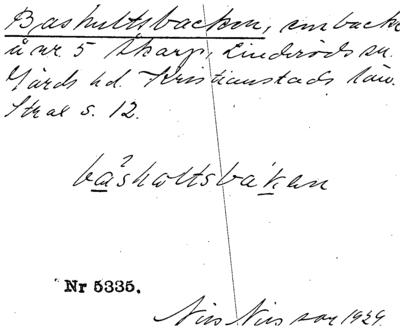 Bashultsbacken, en backe
å nr. 5 Skarp, Linderöds sn.
Gärds hd. Kristianstads län.
Strae s. 12.
båsholtsbaken
Nr 5335.
Nils Nilsson 1929.